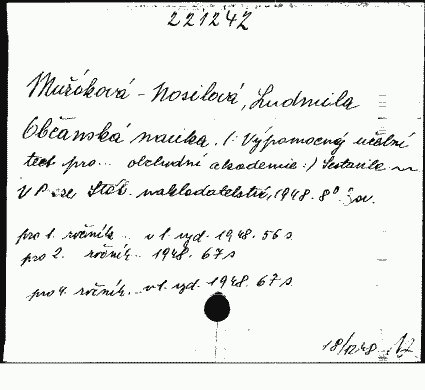 221242
Mužáková-Nosilová, Ludmila
Občanská nauka. /: Výpomocný učební
text pro... obchodní akademie :/ Sestavila
V Praze Stát. nakladatelství, 1948. 8°
pro 1. ročník... v 1. vyd. 1948. 56 s.
pro 2. ročník... 1948. 67 s
pro 4. ročník. v 1. vyd. 1948. 67 s.
18/1248